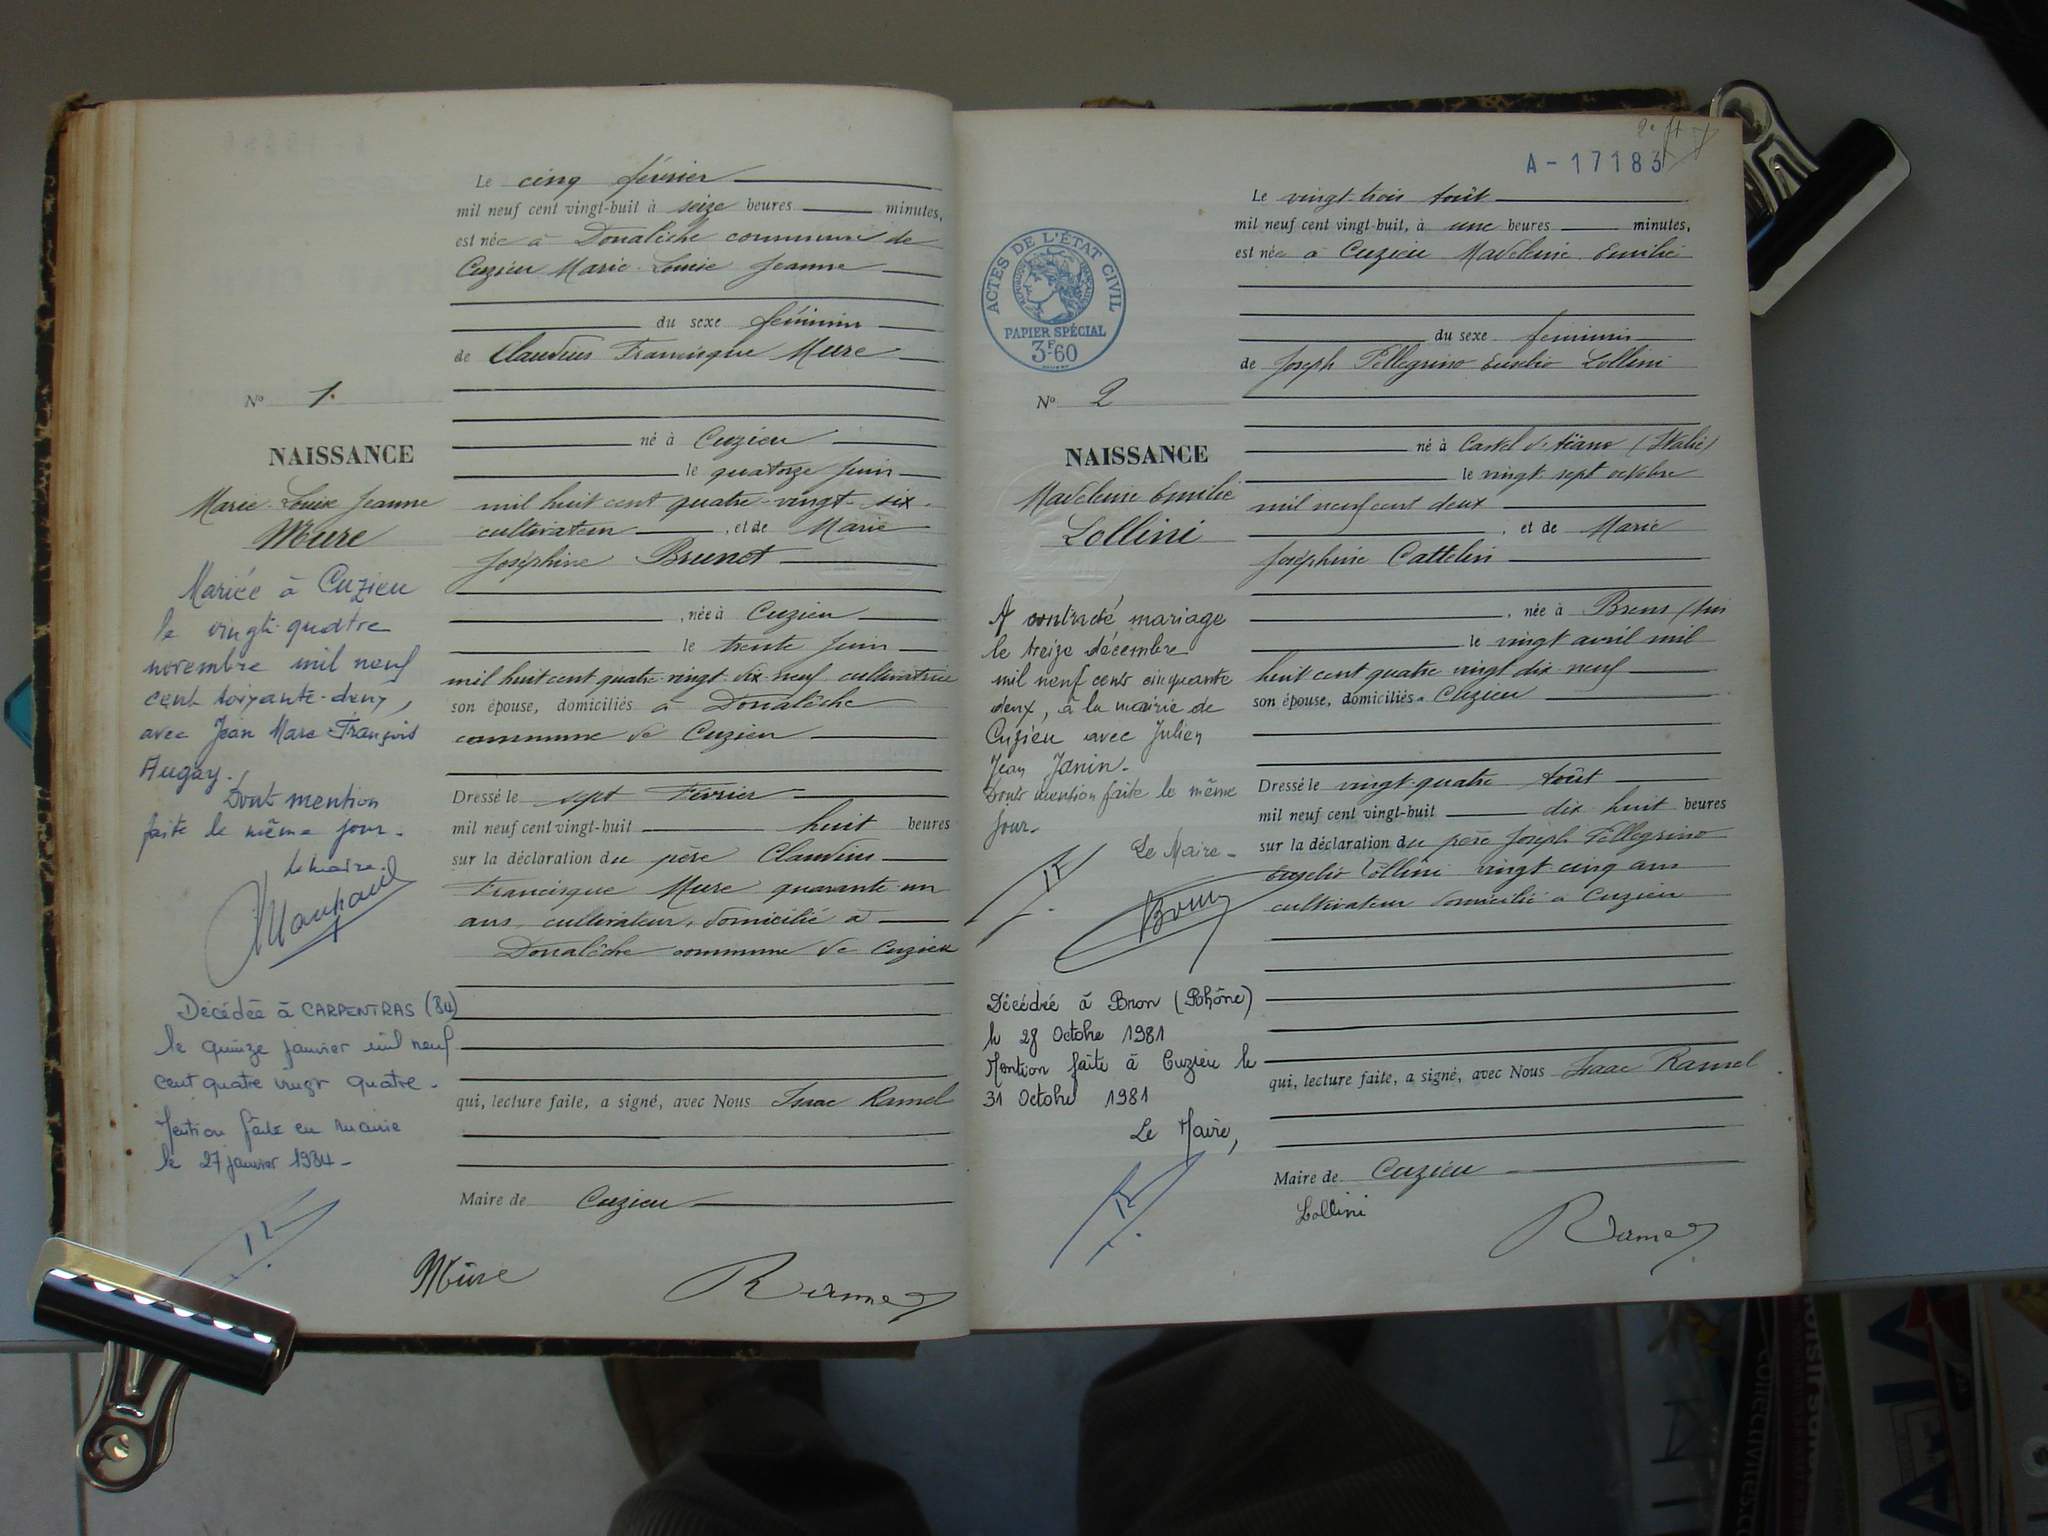 Le cinq février
mil neuf cent vingt-huit à seize heures minutes,
est née à Donalèche commune de
Cuzieu Marie Louise Jeanne
du sexe féminin
de Claudius Francisque Mure
Nº 1.
né à Cuzieu
NAISSANCE
le quatorze juin
Marie Louise Jeanne
Mure
mil huit cent quatre-vingt-six
cultivateur, et de Marie
Joséphine Brunet
née à Cuzieu
le trente juin
mil huit cent quatre-vingt-dix-neuf cultivatrice
son épouse, domiciliés à Donalèche
commune de Cuzieu
Dressé le sept Février
mil neuf cent vingt-huit huit heures
sur la déclaration du père Claudius
Francisque Mure quarante un
ans, cultivateur, domicilié à
Donalèche commune de Cuzieu
qui, lecture faite, a signé, avec Nous Isaac Ramel
Maire de Cuzieu
Mûre
Ramel
Mariée à Cuzieu
le vingt-quatre
novembre mil neuf
cent soixante-deux,
avec Jean Marc François
Augay.
Dont mention
faite le même jour.
le maire.
Décédée à CARPENTRAS (84)
le quinze janvier mil neuf
cent quatre vingt quatre.
Mention faite en mairie
le 27 janvier 1984.
A-17183
Le vingt-trois Août
mil neuf cent vingt-huit, à une heures minutes,
est née à Cuzieu Madeleine Emilie
du sexe féminin
de Joseph Pellegrino Eusebio Lollini
ACTES DE L'ÉTAT CIVIL
RÉPUBLIQUE FRANÇAISE
PAPIER SPÉCIAL
3F60
Nº 2
NAISSANCE
Madeleine Emilie
Lollini
né à Castel d'Aiano (Italie)
le vingt sept octobre
mil neuf cent deux
, et de Marie
Joséphine Cattelin
, née à Brens Ain
le vingt avril mil
huit cent quatre vingt dix-neuf
son épouse, domiciliés à Cuzieu
Dressé le vingt-quatre Août
mil neuf cent vingt-huit dix huit heures
sur la déclaration du père Joseph Pellegrino
Eusebio Lollini vingt cinq ans
cultivateur domicilié à Cuzieu
qui, lecture faite, a signé, avec Nous Isaac Ramel
Maire de Cuzieu
Lollini
Ramel
A contracté mariage
le treize décembre
mil neuf cent cinquante
deux, à la mairie de
Cuzieu avec Julien
Jean Janin.
Dont mention faite le même
jour.
Le Maire.
Décédée à Bron (Rhône)
le 28 Octobre 1981
Mention faite à Cuzieu le
31 Octobre 1981
Le Maire,